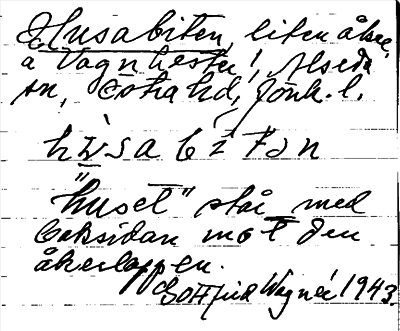 Husabiten, liten åker,
å Vagnhester, Alseda
sn, Ö. härad, Jönk. l.
hùsabítən
"huset" står med
baksidan mot den
åkerlappen.
Gottfrid Wagnér 1943.